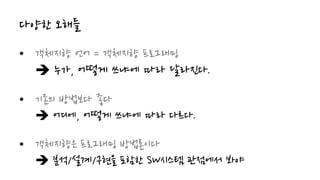 다양한 오해들
• 객체지향 언어 = 객체지향 프로그래밍
➔ 누가, 어떻게 쓰냐에 따라 달라진다.
• 기존의 방법보다 좋다
➔ 어디에, 어떻게 쓰냐에 따라 다르다.
• 객체지향은 프로그래밍 방법론이다
➔ 분석/설계/구현을 포함한 SW시스템 관점에서 봐야